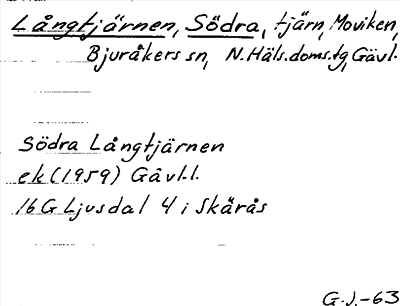 Långtjärnen, Södra, tjärn, Moviken,
Bjuråkers sn, N. Häls. doms. tg, Gävl.
Södra Långtjärnen
ek (1959) Gävl.l.
16G Ljusdal 4 i Skårås
G.J.-63